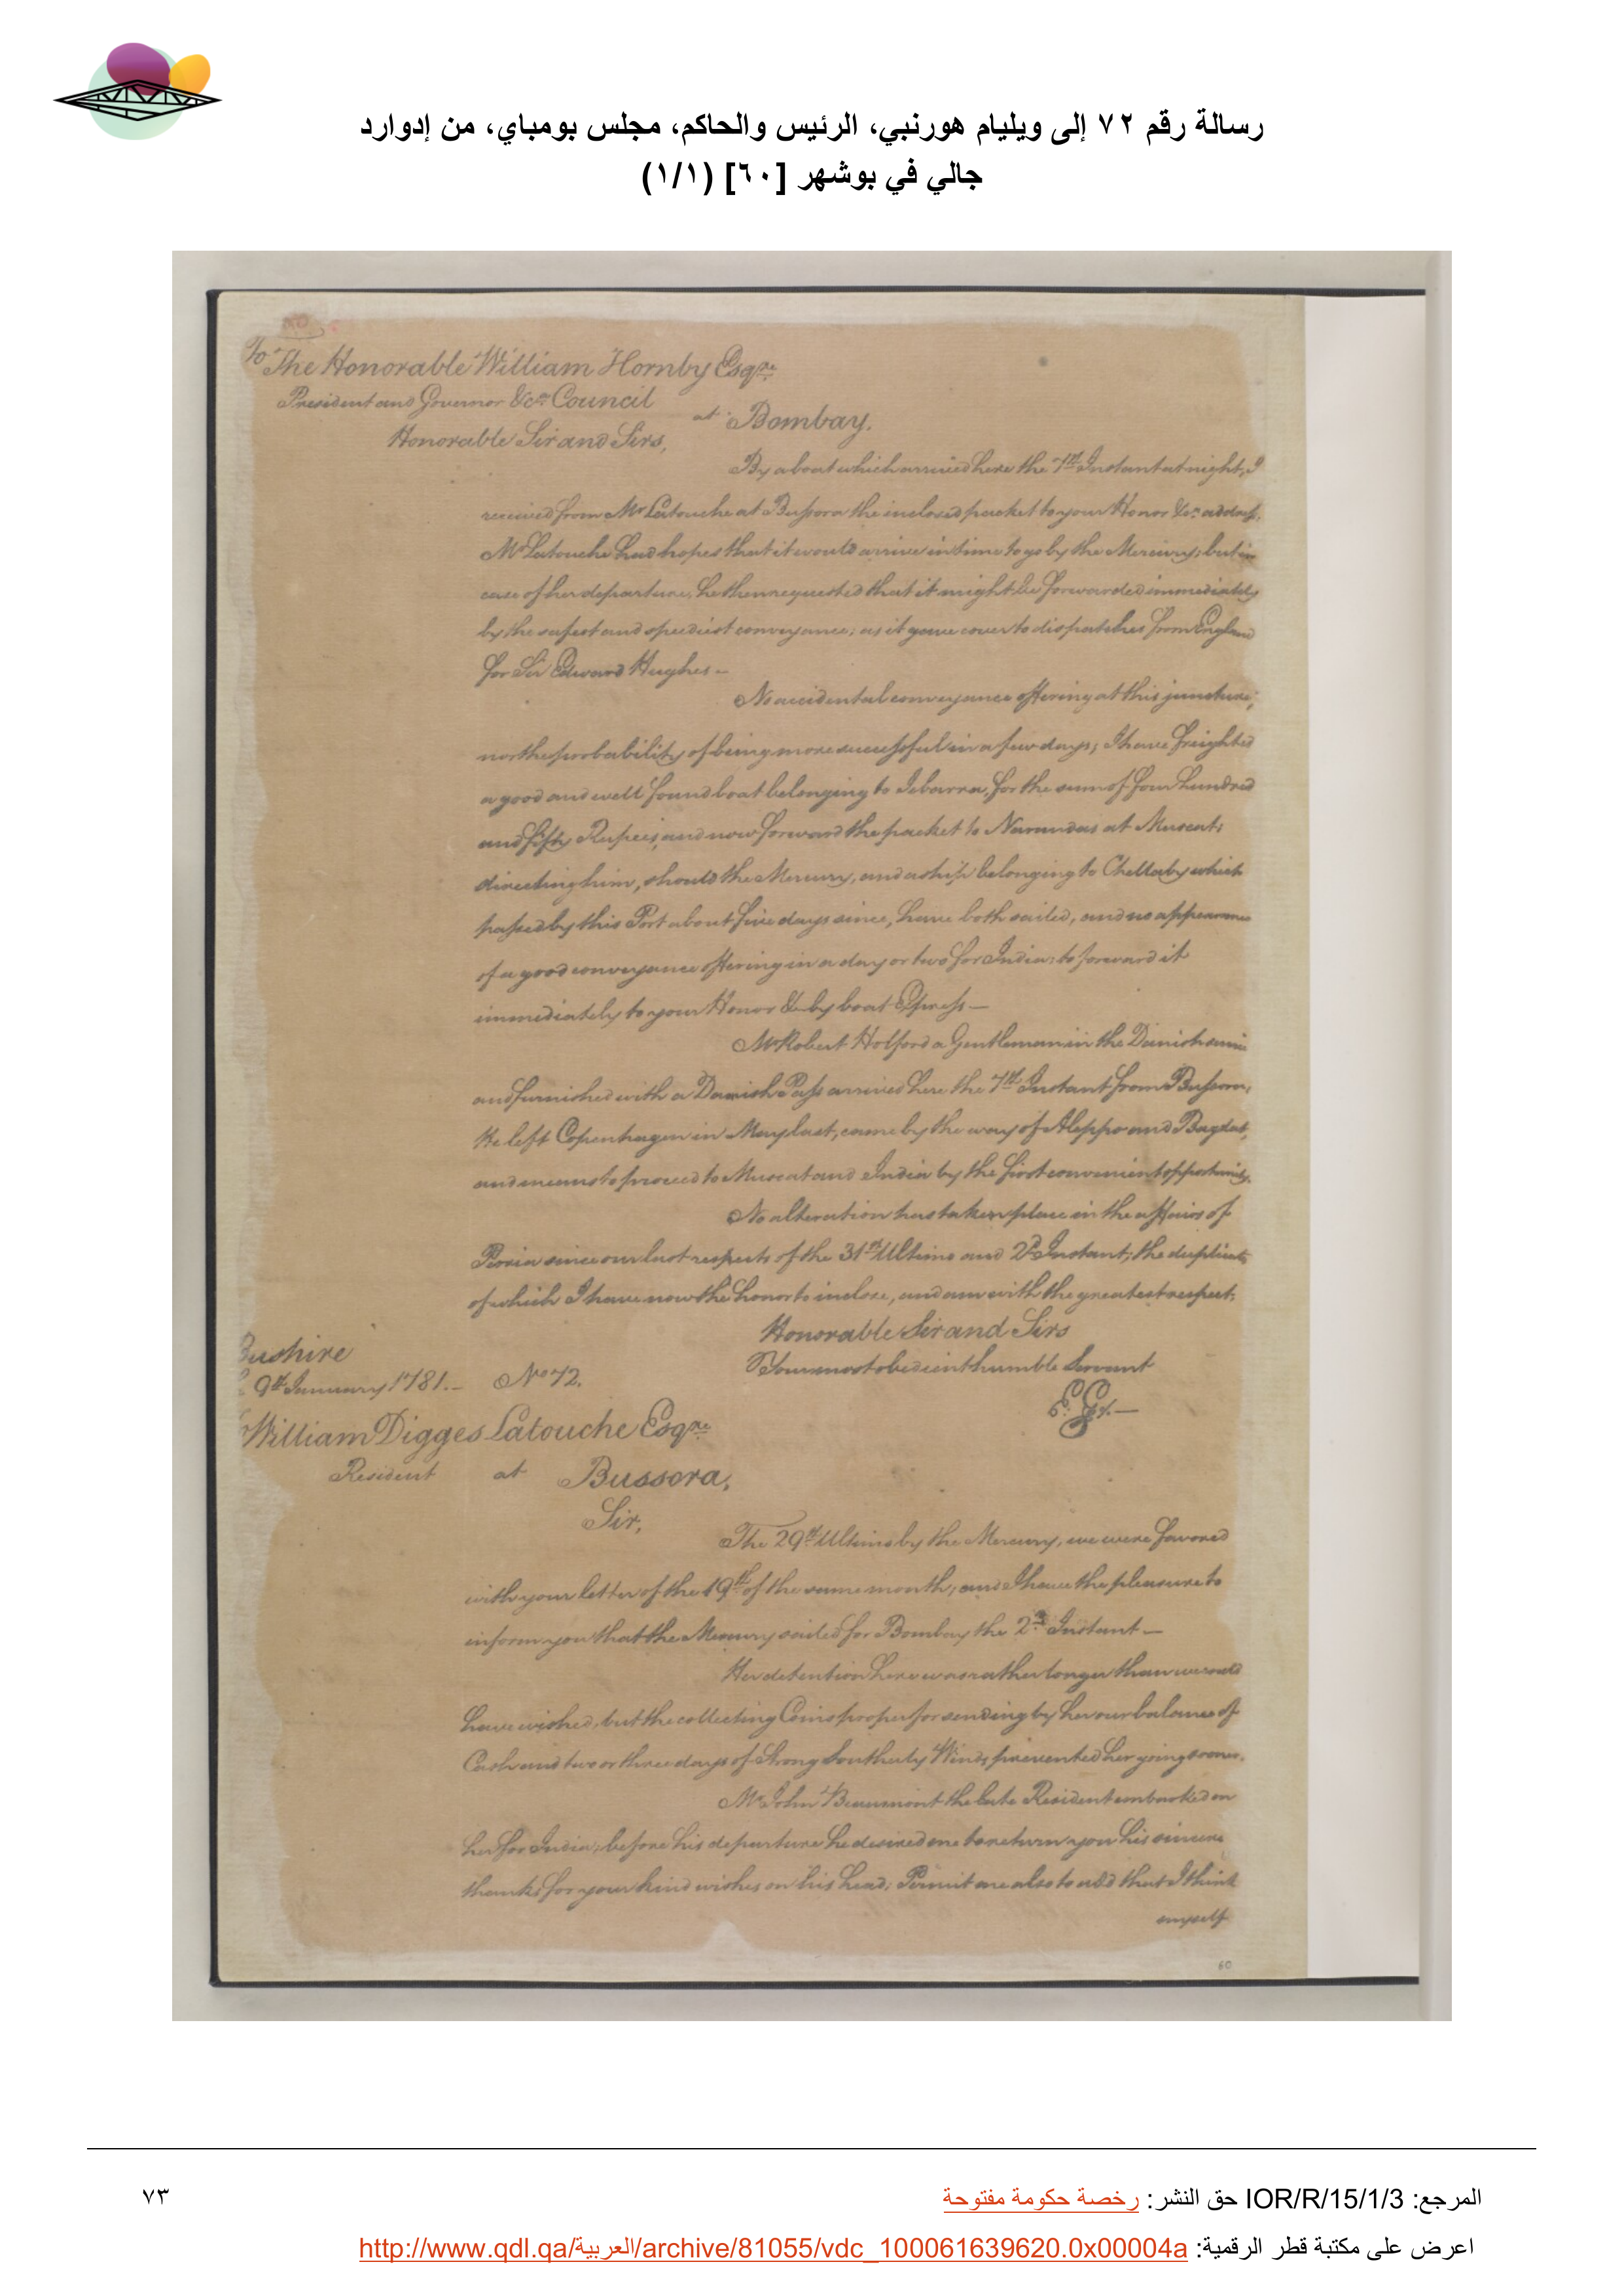 رسالة رقم ٧٢ إلى ويليام هورنبي، الرئيس والحاكم، مجلس بومباي، من إدوارد
جالي في بوشهر [٦٠] (١/١)
To The Honorable William Hornby Esqre
President and Governor &ca Council
at Bombay.
Honorable Sir and Sirs,
By a boat which arrived here the 7th Instant at night, I
received from Mr Latouche at Bussora the inclosed packet to your Honor &ca address.
Mr Latouche had hopes that it would arrive in time to go by the Mercury; but in
case of her departure, he then requested that it might be forwarded immediately
by the safest and speediest conveyance; as it gave cover to dispatches from England
for Sir Edward Hughes —
No accidental conveyance offering at this juncture,
nor the probability of being more successful in a few days; I have freighted
a good and well found boat belonging to Jebarra, for the sum of four hundred
and fifty Rupees, and now forward the packet to Narandas at Muscat;
directing him, should the Mercury, and a ship belonging to Chellaby which
passed by this Port about five days since, have both sailed, and no appearance
of a good conveyance offering in a day or two for India: to forward it
immediately to your Honor &ca by boat Express —
Mr Robert Holford a Gentleman in the Danish service
and furnished with a Danish Pass arrived here the 7th Instant from Bussora,
He left Copenhagen in May last, came by the way of Aleppo and Bagdat,
and means to proceed to Muscat and India by the first convenient opportunity.
No alteration has taken place in the affairs of
Persia since our last respects of the 31st Ultimo and 2d Instant; the duplicate
of which I have now the honor to inclose, and am with the greatest respect,
Honorable Sir and Sirs
Your most obedient humble Servant
E. G.
Bushire
9th January 1781.— No 72.
William Digges Latouche Esqre
Resident at Bussora,
Sir,
The 29th Ultimo by the Mercury, we were favored
with your letter of the 19th of the same month; and I have the pleasure to
inform you that the Mercury sailed for Bombay the 2d Instant —
Her detention here was rather longer than we could
have wished, but the collecting Coins proper for sending by her our balance of
Cash and two or three days of Strong Southerly Winds prevented her going sooner.
Mr John Beaumont the late Resident embarked on
her for India; before his departure he desired me to return you his sincere
thanks for your kind wishes on his head; Permit me also to add that I think
myself
60
المرجع: IOR/R/15/1/3 حق النشر: رخصة حكومة مفتوحة
٧٣
اعرض على مكتبة قطر الرقمية: http://www.qdl.qa/العربية/archive/81055/vdc_100061639620.0x00004a